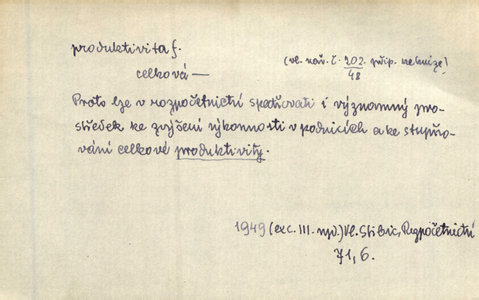 produktivita f.
(vl. nař. č. 202/48 příp. nebniže)
celková —
Proto lze v rozpočetnictví spatřovati i významný pro-
středek ke zvýšení výkonnosti v podnicích a ke stupňo-
vání celkové produktivity.
1949 (exc. III. vyd.) Vl. Stibic, Rozpočetnictví
71, 6.